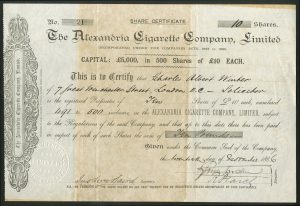 No. 21 SHARE CERTIFICATE 10 Shares.
The Alexandria Cigarette Company, Limited
INCORPORATED UNDER THE COMPANIES ACTS, 1862 to
CAPITAL: £5,000, in 500 SHARES of £10 EACH.
This is to Certify that Charles Albert
of 7 Great Winchester Street, London E.C. Solicitor
is the registered Proprietor of Ten Shares of £10 each, numbered
491 to 500 inclusive, in the ALEXANDRIA CIGARETTE COMPANY, LIMITED, subject
to the Regulations of the said Company, and that up to this date there has been paid
in respect of each of such Shares the sum of Ten Pounds
Given under the Common Seal of the Company,
the day of 1896
The Alexandria Cigarette Company, Limited